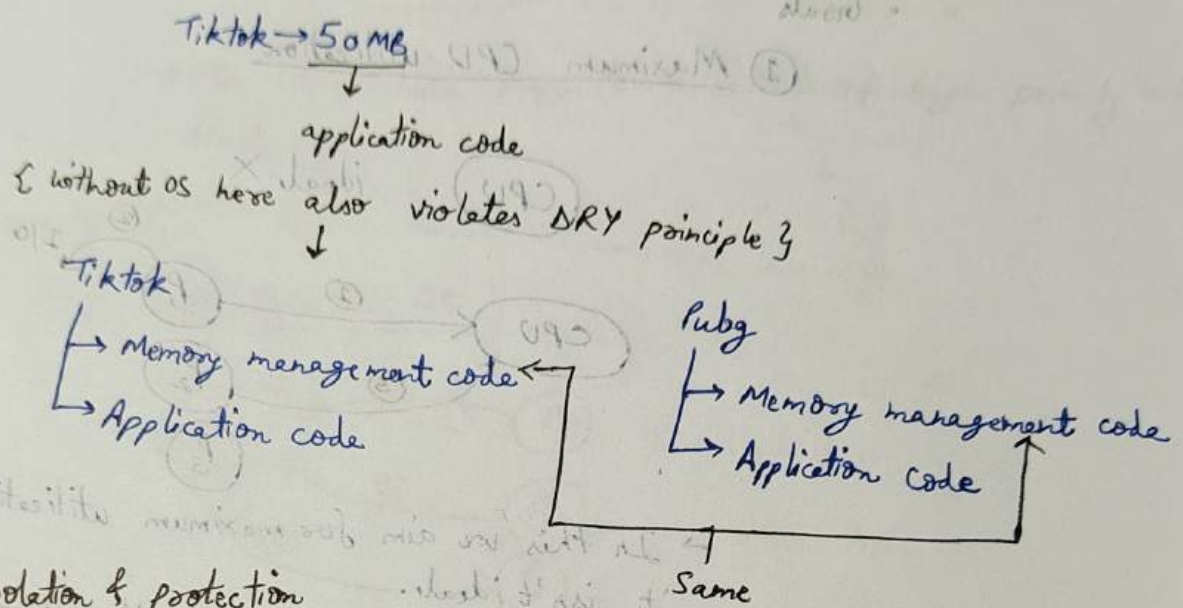 Tiktok → 50 MB
↓
application code
{ without OS here also violates DRY principle }
↓
Tiktok
→ Memory management code
→ Application code
Pubg
→ Memory management code
→ Application code
Same
& protection